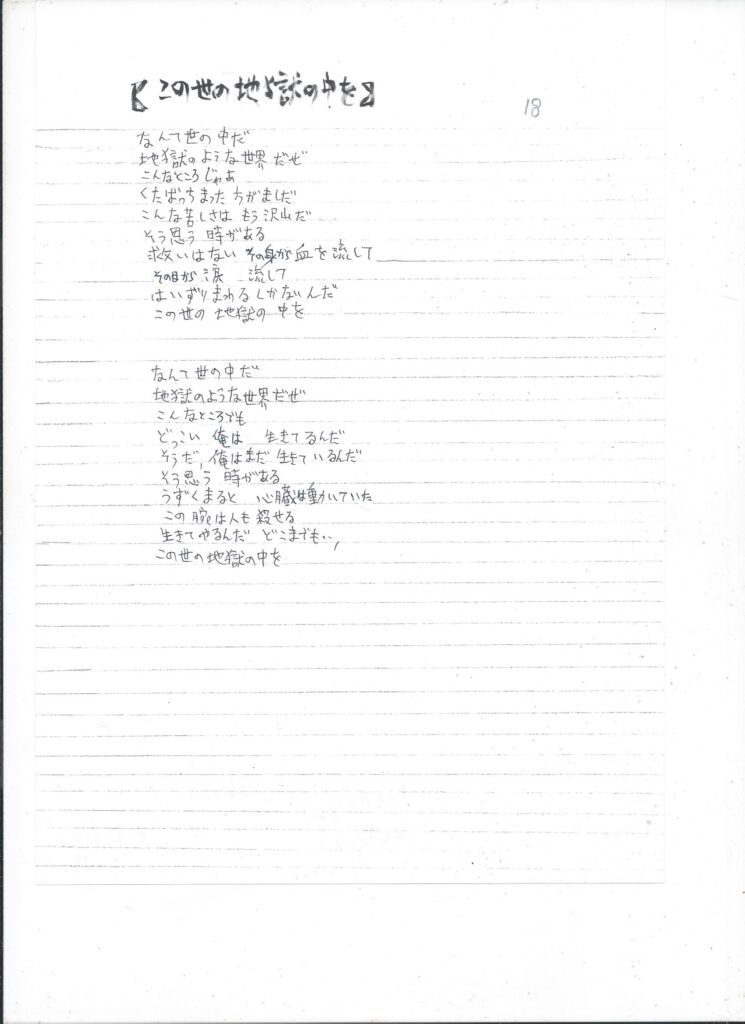 【この世の地獄の中を】
18
なんて世の中だ
地獄のような世界だぜ
こんなところじゃあ
くたばっちまった方がましだ
こんな苦しさは もう沢山だ
そう思う 時がある
救いはない その身が血を流して
その目が涙 流して
はいずりまわるしかないんだ
この世の 地獄の 中を
なんて世の中だ
地獄のような世界だぜ
こんなところでも
どっこい 俺は 生きてるんだ
そうだ, 俺はまだ 生きているんだ
そう思う 時がある
うずくまると 心臓は動いていた
この腕は人も殺せる
生きてやるんだ どこまでも・・,
この世の地獄の中を